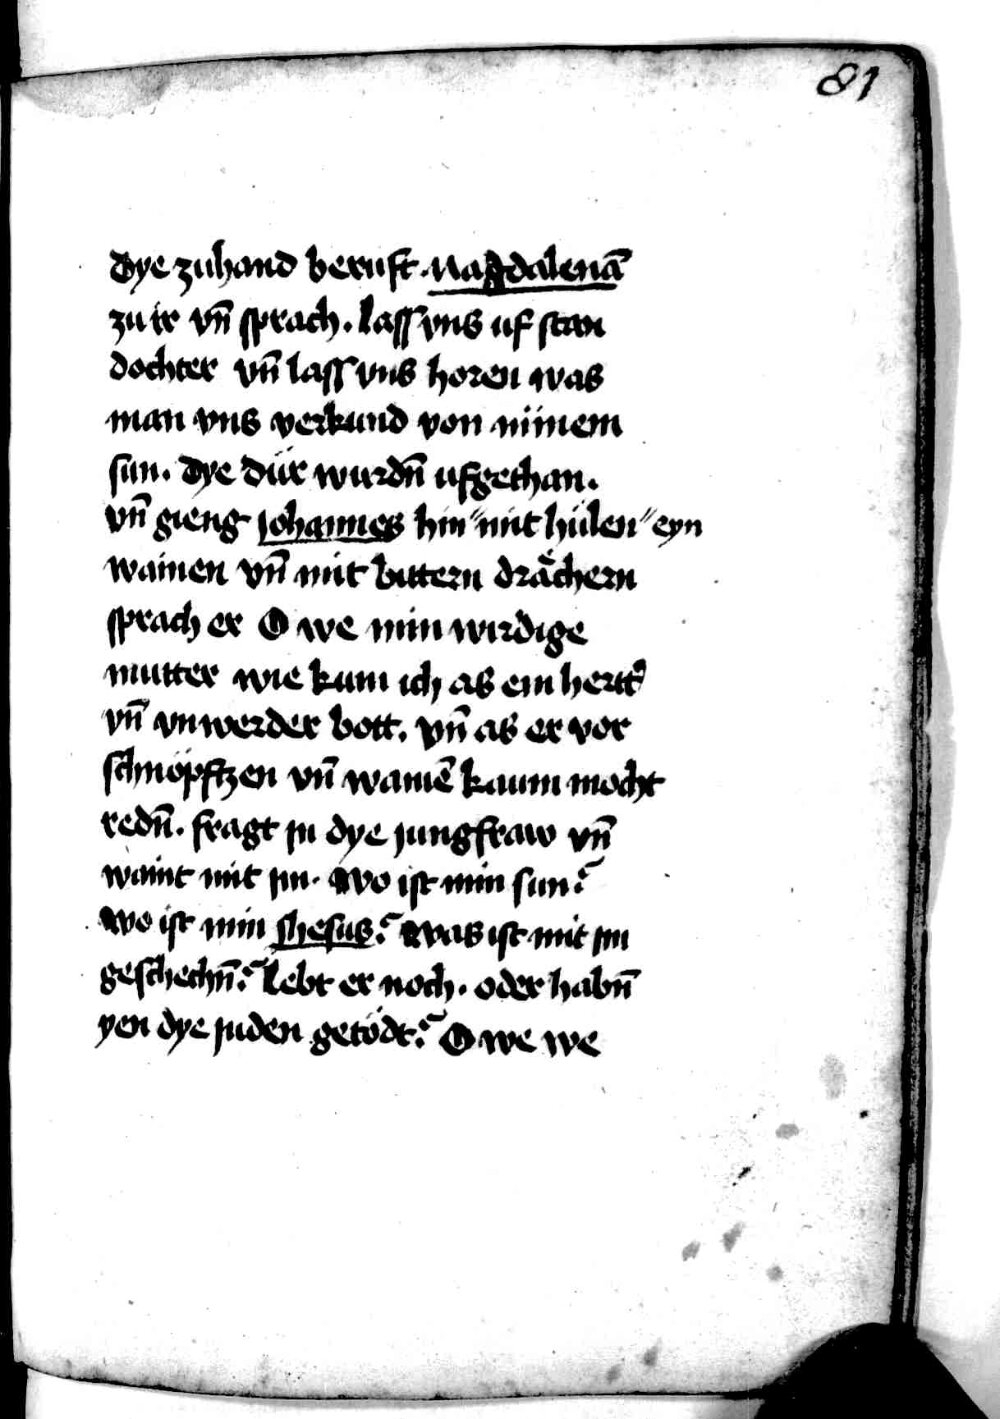 81
Dye zuhand beruft Magdalenā
zu ir vn̄ sprach. lass vns uf stan
dochter vn̄ lass vns horen was
man vns verkund von minem
sun. Dye dür wurdn̄ ufgethan.
vn̄ gieng Johannes hin mit hülen eyn
wainen vn̄ mit bittern drächern
sprach er O we min wirdige
mutter wie kum ich as ein hertt
vn̄ vnwerder bott. vn̄ as er vor
schnöpftzen vn̄ wainē kaum mocht
redn̄. fragt in dye jungfraw vn̄
waint mit im. Wo ist min sun?
wo ist min Jhesus? Was ist mit im
geschechn̄? lebt er noch. oder habn̄
yen dye juden getödt? O we we